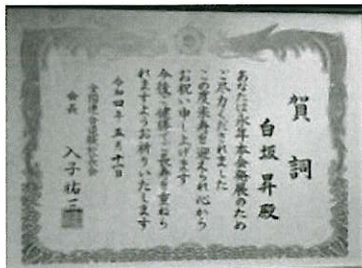 賀詞
白坂 昇殿
あなたは永年本会発展のため
ご尽力くださいました
この度米寿を迎えられ心から
お祝い申し上げます
今後ご健勝でご長寿を重ねら
れますようお祈りいたします
令和四年五月十一日
会長 入子祐三